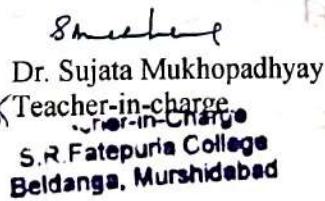 Dr. Sujata Mukhopadhyay
Teacher-in-charge
S.R. Fatepuria College
Beldanga, Murshidabad